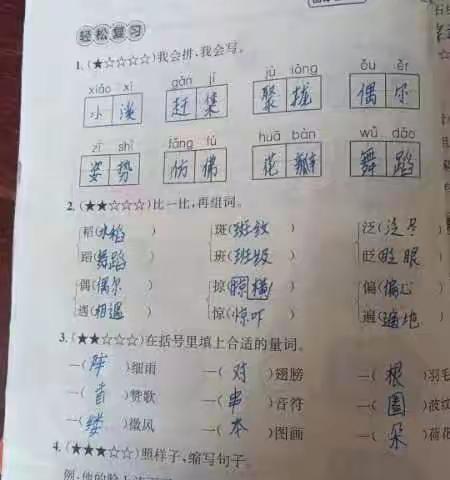 轻松复习
1.(★☆☆☆☆)我会拼,我会写。
xiǎo xī gǎn jí jù lǒng ǒu ěr
小 溪 赶 集 聚 拢 偶 尔
zī shì fǎng fú huā bàn wǔ dǎo
姿 势 仿 佛 花 瓣 舞 蹈
2.(★★☆☆☆)比一比,再组词。
稻(水稻) 斑(斑纹) 泛(泛
蹈(舞蹈) 班(班级) 眨(眨眼)
偶(偶尔) 掠(掠 偏(偏心)
遇(相遇) 惊(惊吓) 遍(遍地)
3.(★★☆☆☆)在括号里填上合适的量词。
一(阵)细雨 一(对)翅膀 一(根)羽毛
一(首)赞歌 一(串)音符 一(圈)波纹
一(缕)微风 一(本)图画 一(朵)荷花
4.(★★★☆☆)照样子,缩写句子。
例:他的脸上